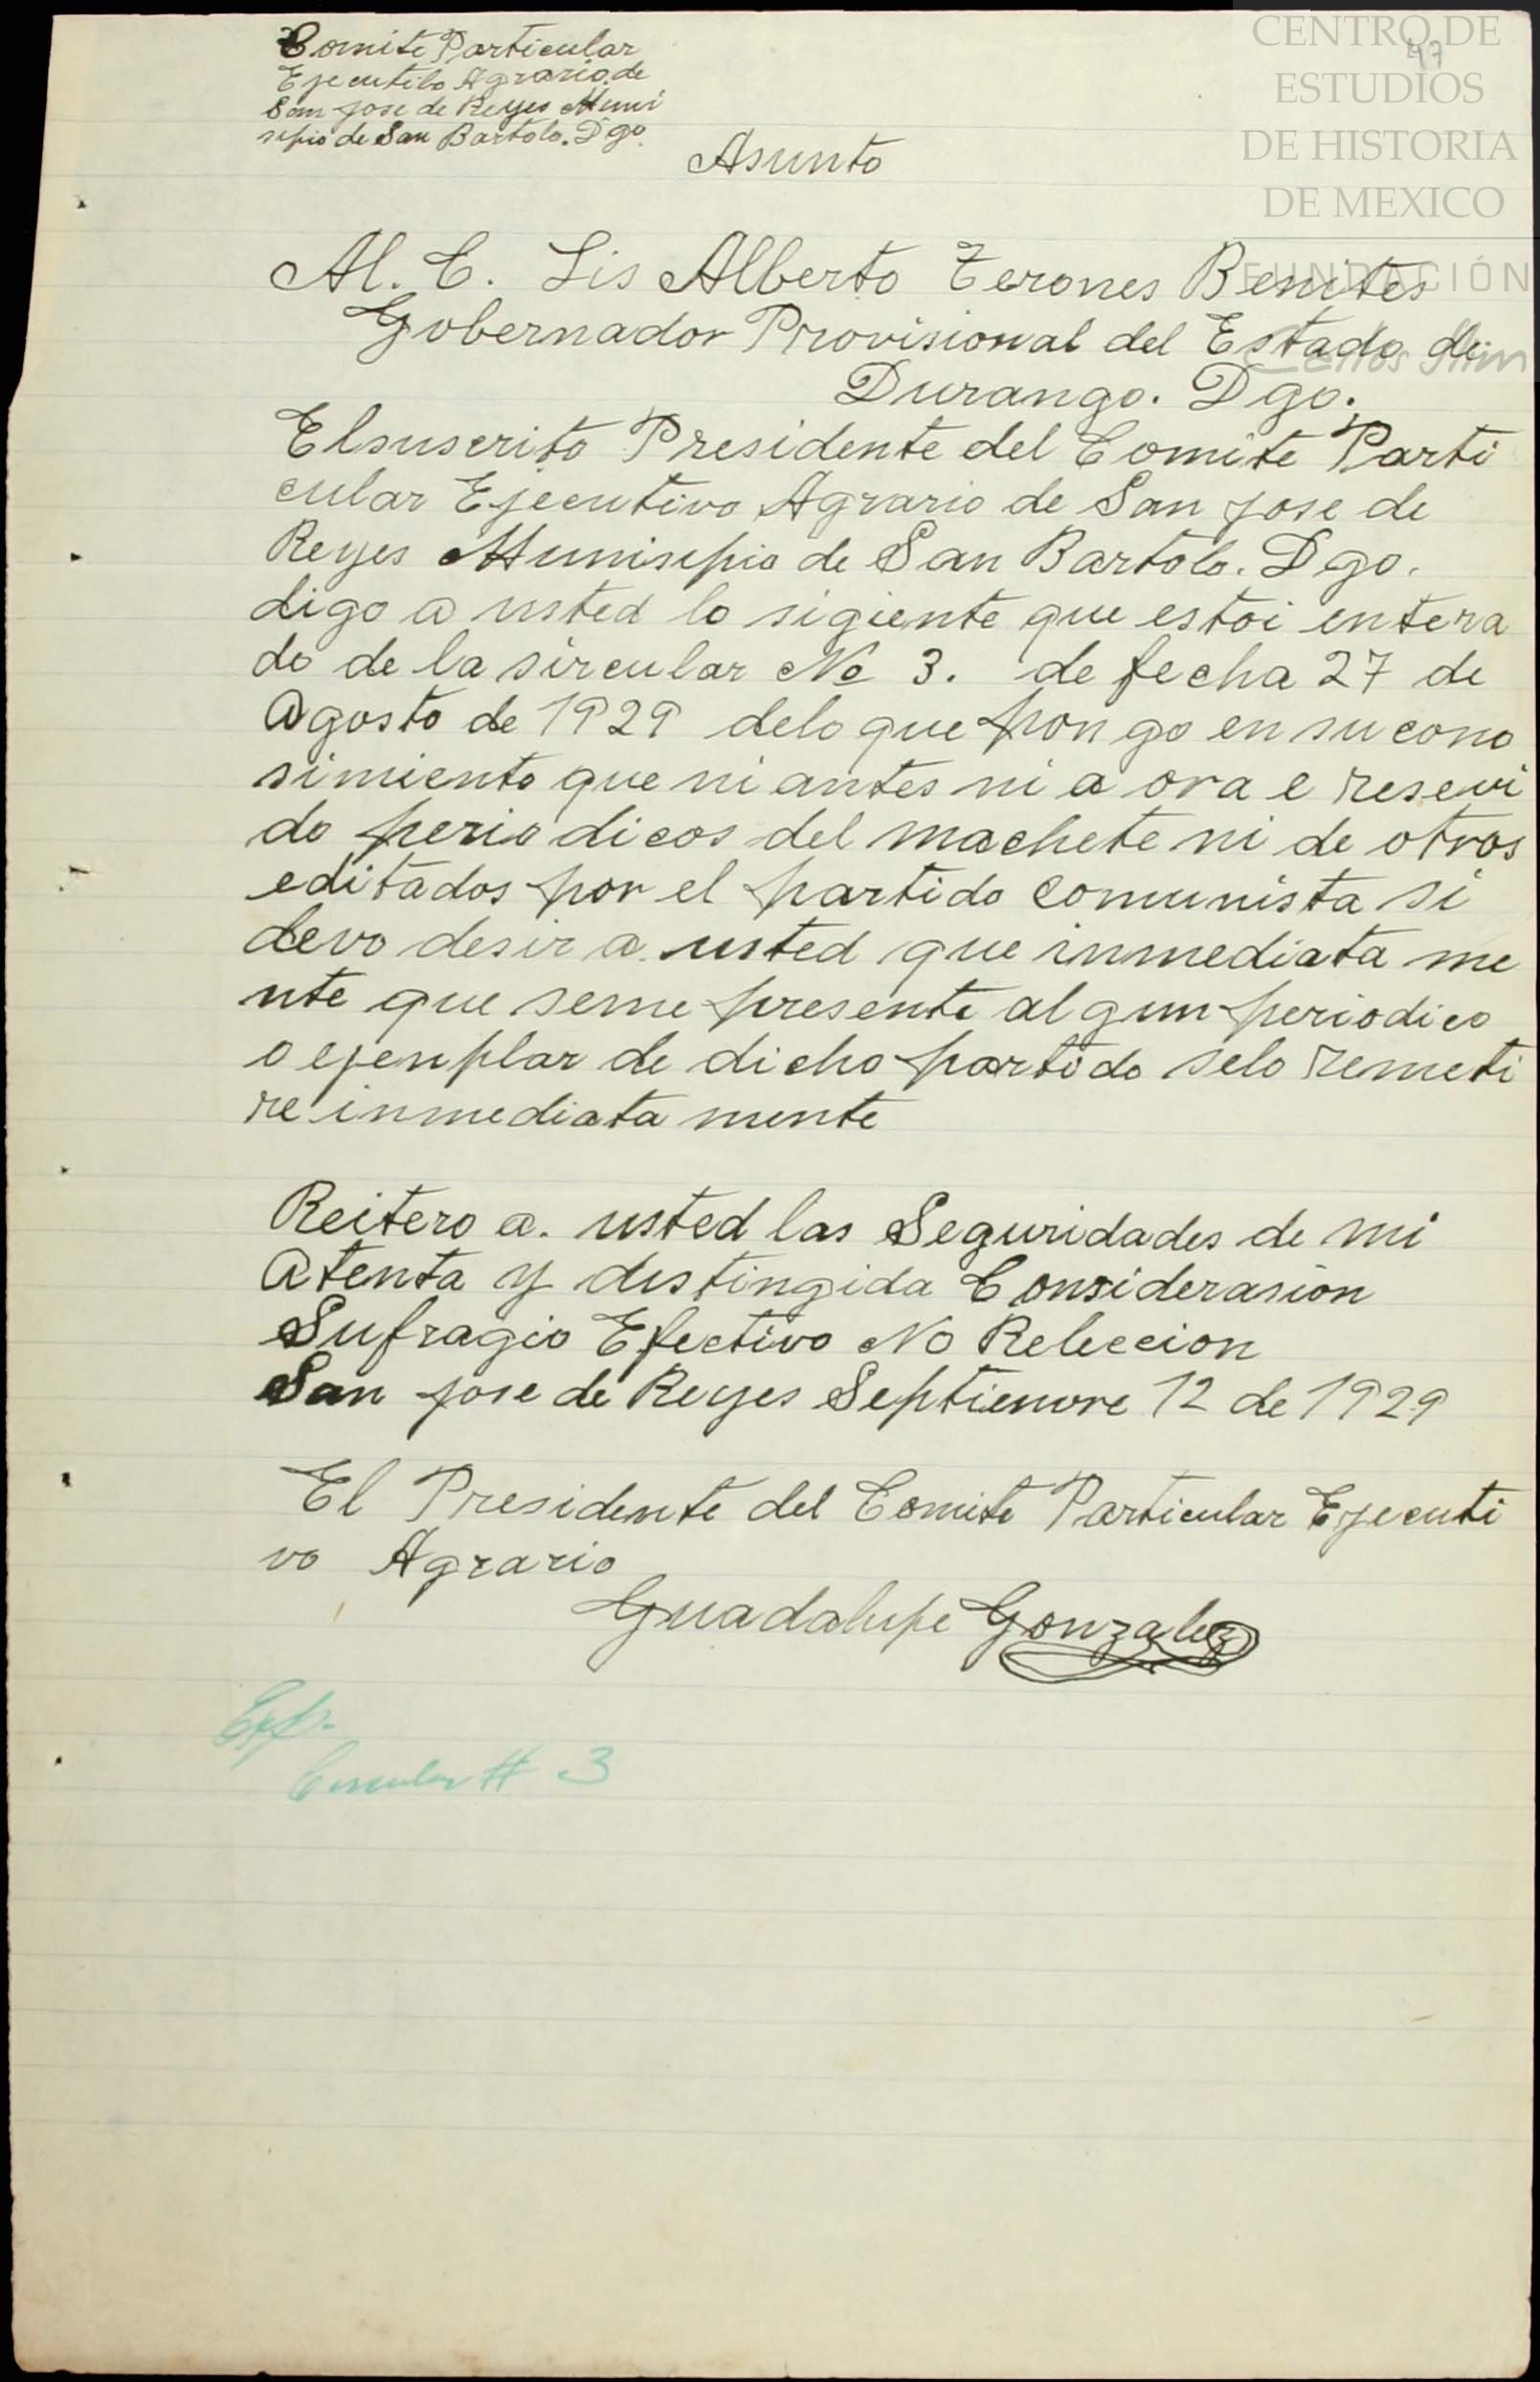 Comite Particular
Ejecutibo Agrario de
San Jose de Reyes Muni
sipio de San Bartolo. Dgo.
47
CENTRO DE
ESTUDIOS
DE HISTORIA
DE MEXICO
FUNDACIÓN
Carlos Slim
Asunto
Al. C. Lis Alberto Terones Benites
Gobernador Provisional del Estado de
Durango. Dgo.
El suscrito Presidente del Comite Parti
cular Ejecutivo Agrario de San Jose de
Reyes Munisipio de San Bartolo. Dgo.
digo a usted lo sigiente que estoi entera
do de la sircular No 3. de fecha 27 de
Agosto de 1929 delo que pongo en su cono
simiento que ni antes ni a ora e resevi
do periodicos del machete ni de otros
editados por el partido comunista si
devo desir a usted que inmediata me
nte que seme presente algun periodico
o ejenplar de dicho partido selo remeti
re inmediata mente
Reitero a. usted las Seguridades de mi
Atenta y distingida Considerasion
Sufragio Efectivo No Releccion
San Jose de Reyes Septienvre 12 de 1929
El Presidente del Comite Particular Ejecuti
vo Agrario
Guadalupe Gonzalez
Exp.
Circular # 3